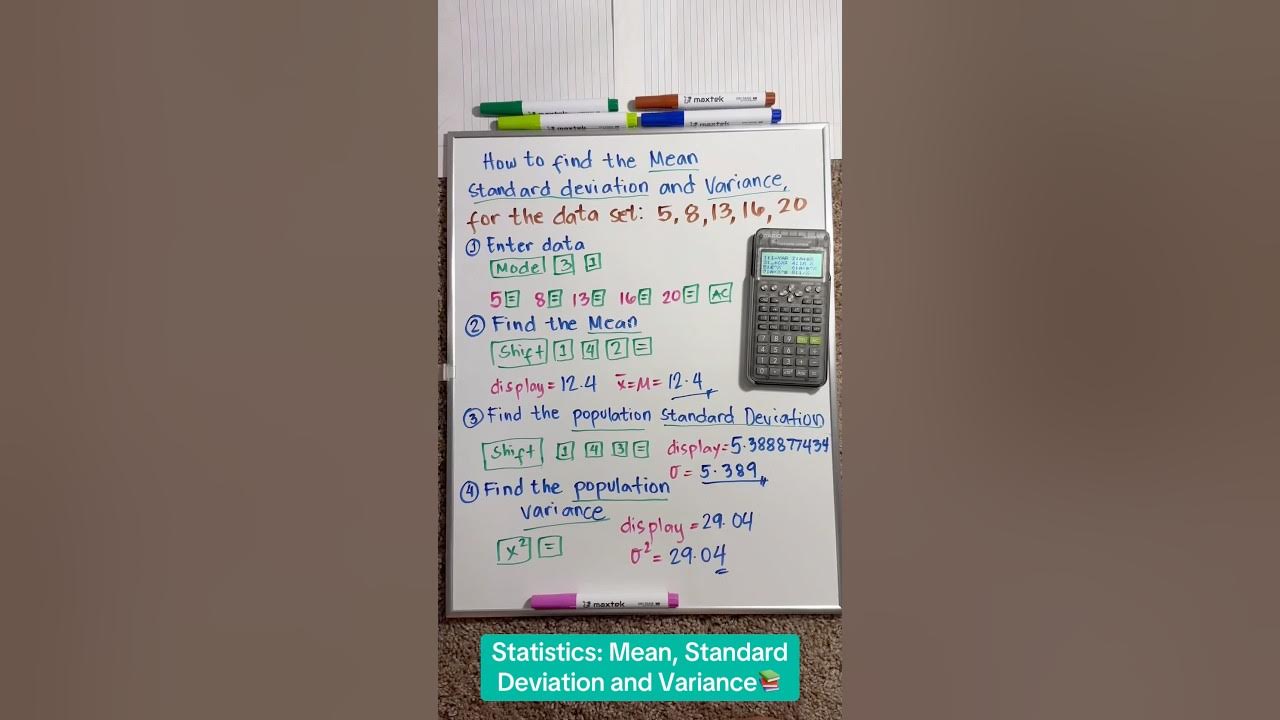 maxtek
maxtek
maxtek
maxtek
How to find the Mean
Standard deviation and Variance,
for the data set: 5, 8, 13, 16, 20
① Enter data
Model 3 1
5 = 8 = 13 = 16 = 20 = AC
② Find the Mean
Shift 1 4 2 =
display = 12.4 x̄ = M = 12.4
③ Find the population Standard Deviation
Shift 1 4 3 = display = 5.388877434
σ = 5.389
④ Find the population
variance
display = 29.04
x² =
σ² = 29.04
maxtek
Statistics: Mean, Standard
Deviation and Variance📚